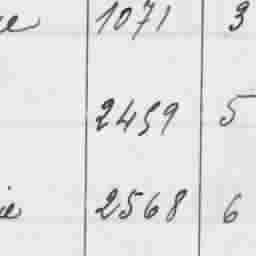 1071 3
2459 5
2568 6